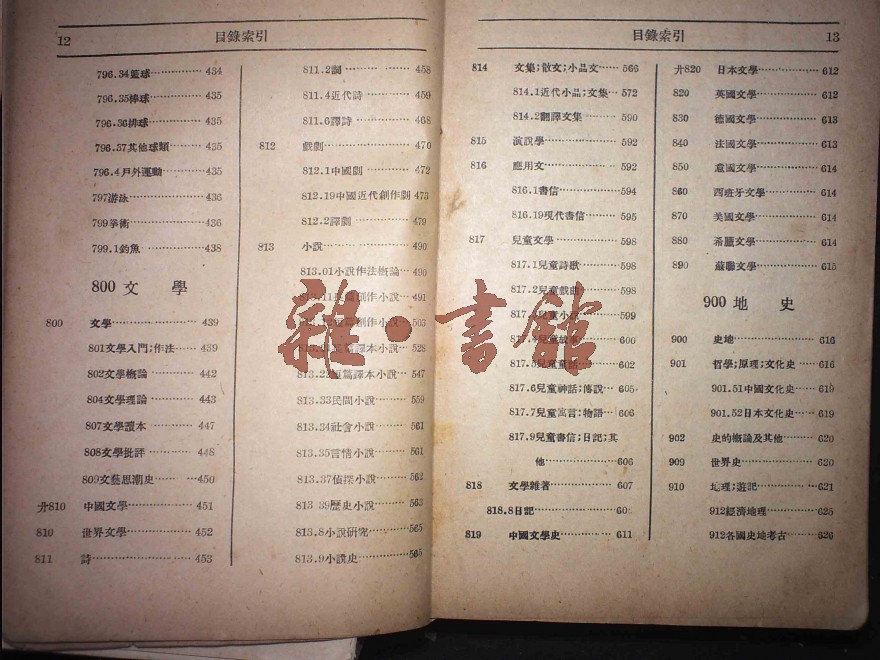 12
目錄索引
796.34籃球 434
796.35棒球 435
796.36排球 435
796.37其他球類 435
796.4戶外運動 435
797游泳 436
799拳術 436
799.1釣魚 438
800 文 學
800 文學 439
801文學入門;作法 439
802文學概論 442
804文學理論 443
807文學讀本 447
808文學批評 448
809文藝思潮史 450
廾810 中國文學 451
810 世界文學 452
811 詩 453
811.2詞 458
811.4近代詩 459
811.6譯詩 468
812 戲劇 470
812.1中國劇 472
812.19中國近代創作劇 473
812.2譯劇 479
813 小說 490
813.01小說作法概論 490
創作小說 491
創作小說 503
譯本小說 528
篇譯本小說 547
813.33民間小說 559
813.34社會小說 561
813.35言情小說 561
813.37偵探小說 562
813 39歷史小說 563
813.8小說研究 565
813.9小說史 565
目錄索引
13
814 文集;散文;小品文 566
814.1近代小品;文集 572
814.2翻譯文集 590
815 演說學 592
816 應用文 592
816.1書信 594
816.19現代書信 595
817 兒童文學 598
817.1兒童詩歌 598
817.2兒童戲曲 598
兒童小 599
600
602
817.6兒童神話;傳說 605
817.7兒童寓言:物語 606
817.9兒童書信;日記;其
他 606
818 文學雜著 607
818.8日記
819 中國文學史 611
廾820 日本文學 612
820 英國文學 612
830 德國文學 613
840 法國文學 613
850 國文學 614
860 西班牙文學 614
870 美國文學 614
880 希臘文學 614
890 蘇聯文學 615
900 地 史
900 史地 616
901 哲學;原理;文化史 616
901.51中國文化史 619
901.52日本文化史 619
902 史的概論及其他 620
909 世界史 620
910 地理;遊記 621
912經濟地理 625
912各國史地考古 626
雜·書館